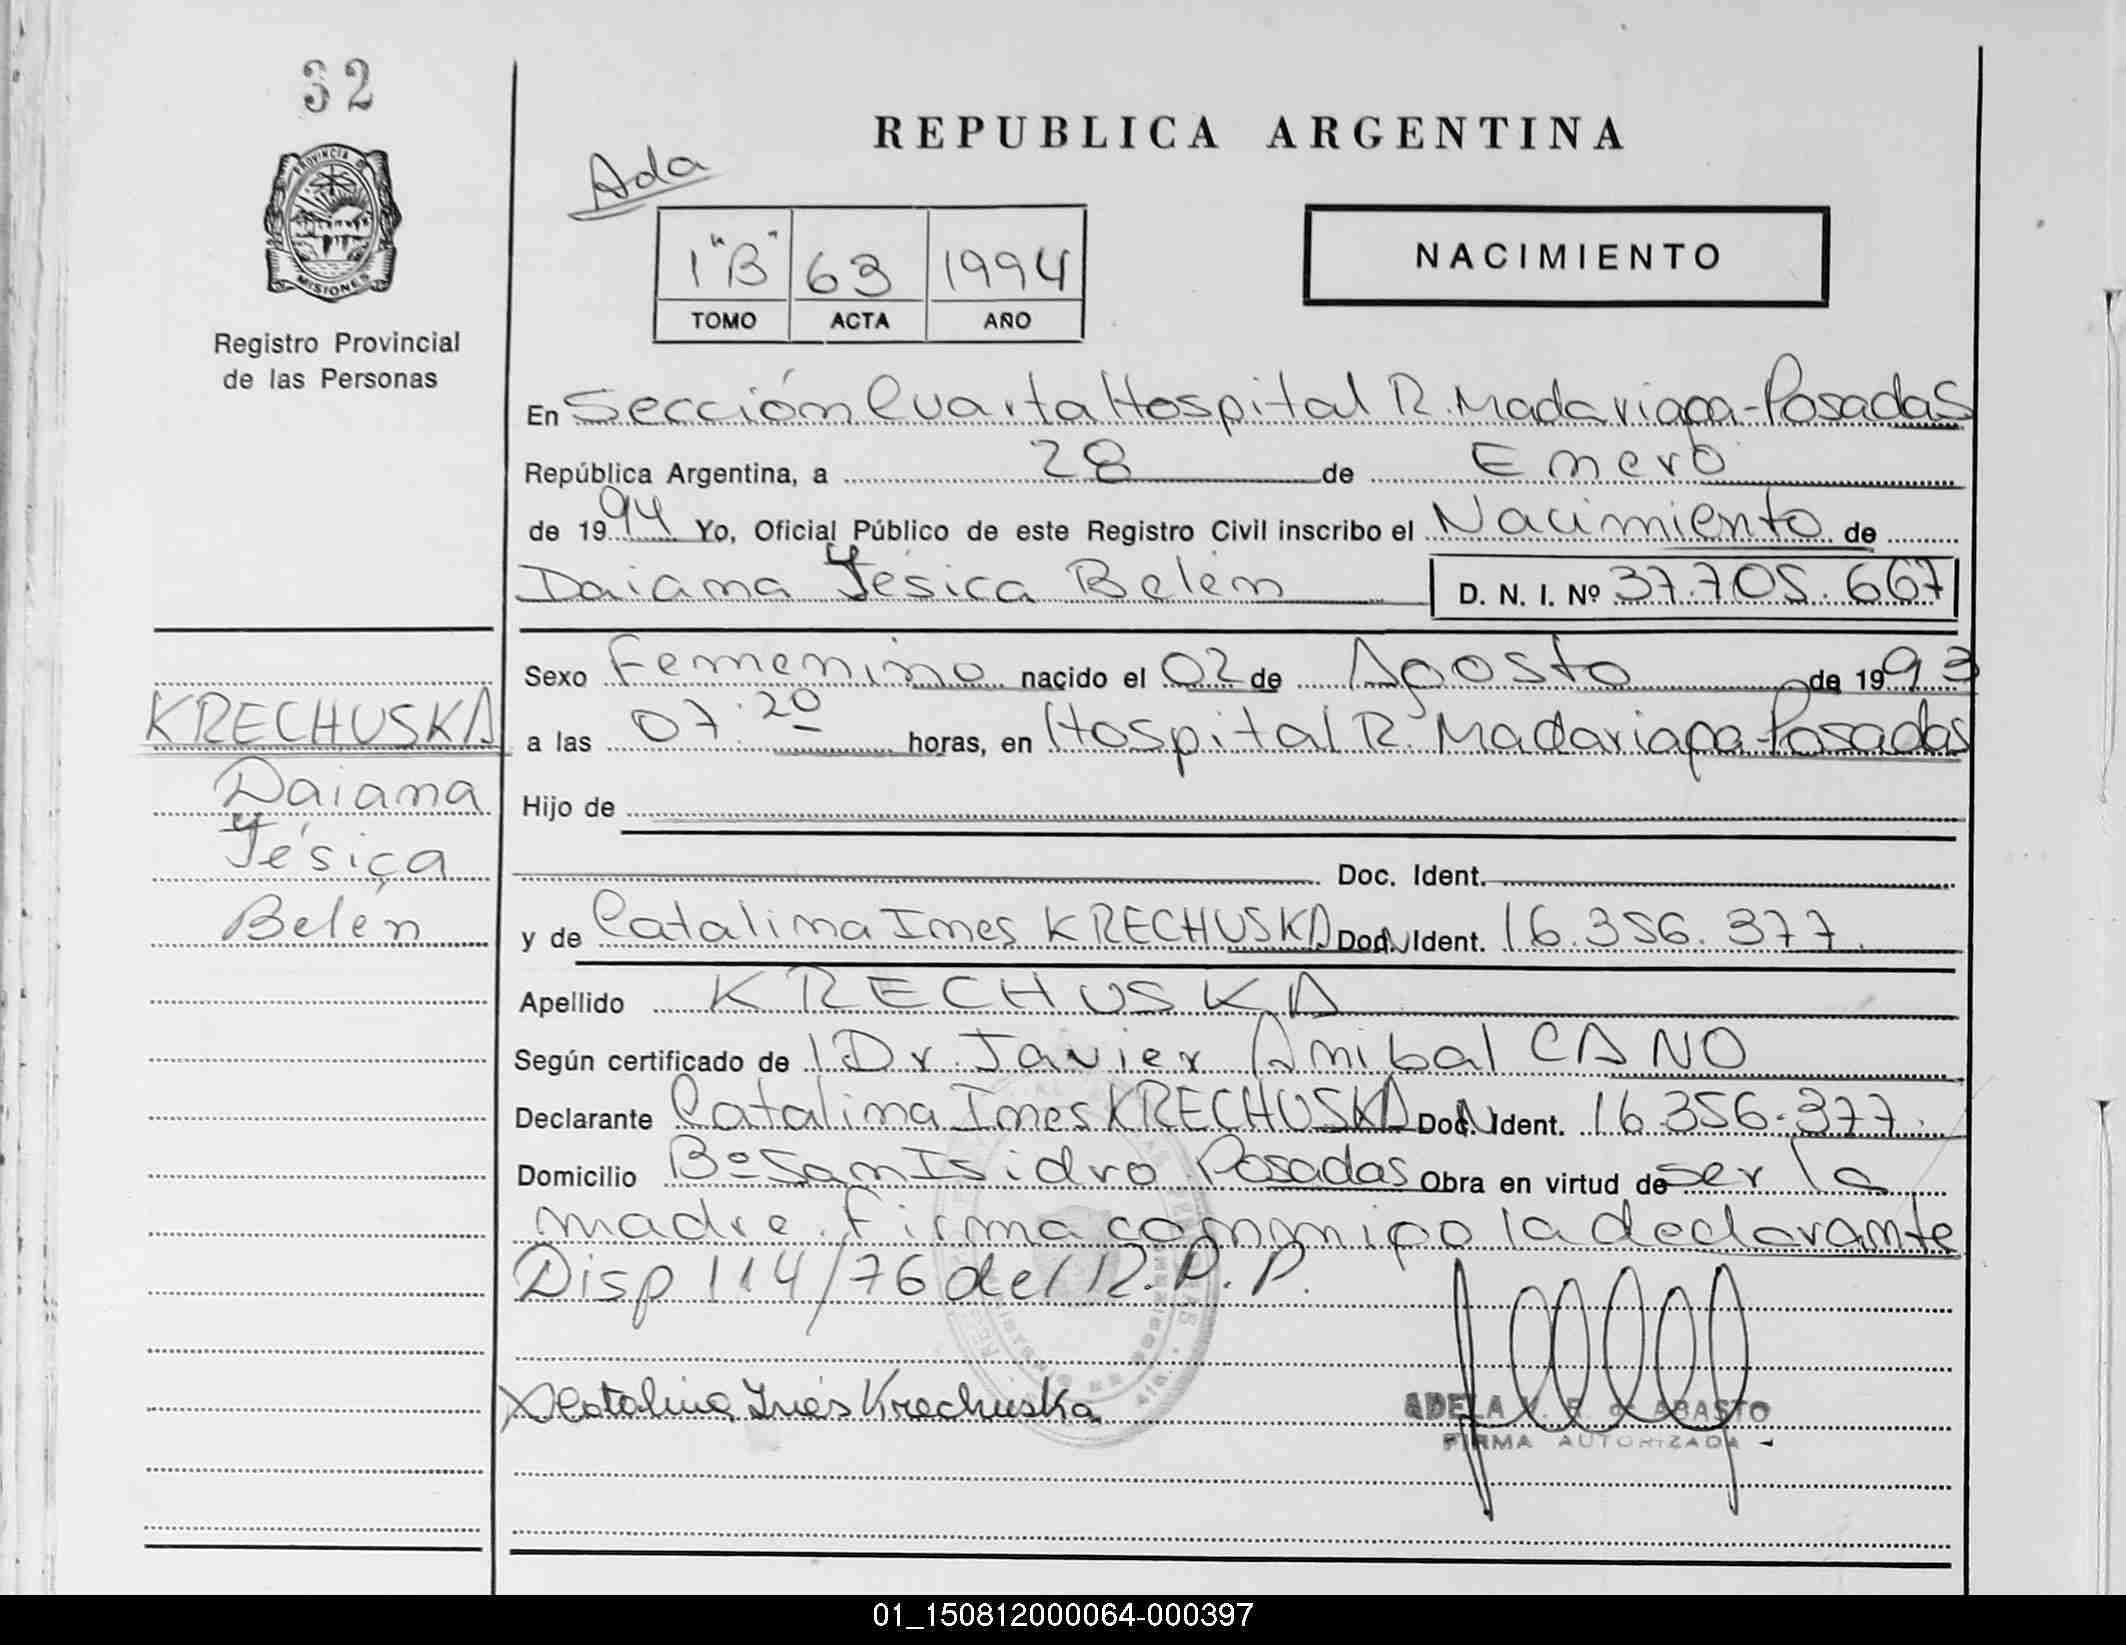 32
PROVINCIA DE
MISIONES
Registro Provincial
de las Personas
REPUBLICA ARGENTINA
Ada
1 "B" 63 1994
TOMO ACTA AÑO
NACIMIENTO
En Sección Cuarta Hospital R. Madariaga - Posadas
República Argentina, a 28 de Enero
de 1994 Yo, Oficial Público de este Registro Civil inscribo el Nacimiento de
Daiana Yésica Belén D. N. I. Nº 37.705.667
Sexo Femenino nacido el 02 de Agosto de 1993
a las 07:20 horas, en Hospital R. Madariaga - Posadas
Hijo de
Doc. Ident.
y de Catalina Ines KRECHUSKA Doc. Ident. 16.356.377.
Apellido KRECHUSKA
Según certificado de l Dr. Javier Anibal CANO
Declarante Catalina Ines KRECHUSKA Doc. Ident. 16.356.377.
Domicilio Bº San Isidro Posadas Obra en virtud de ser la
madre. Firma conmigo la declarante
Disp 114/76 del R.P.P.
Catalina Inés Krechuska
ADELA V. R. de ABASTO
FIRMA AUTORIZADA
KRECHUSKA
Daiana
Yésica
Belén
01_150812000064-000397